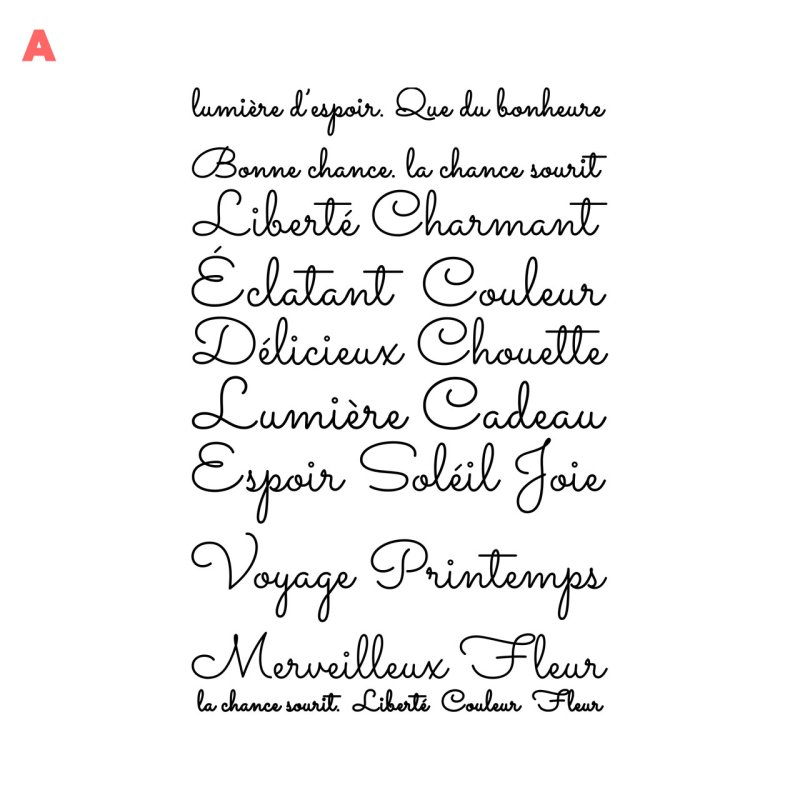 A
lumière d'espoir. Que du bonheure
Bonne chance. la chance sourit
Liberté Charmant
Éclatant Couleur
Délicieux Chouette
Lumière Cadeau
Espoir Soléil Joie
Voyage Printemps
Merveilleux Fleur
la chance sourit. Liberté Couleur Fleur